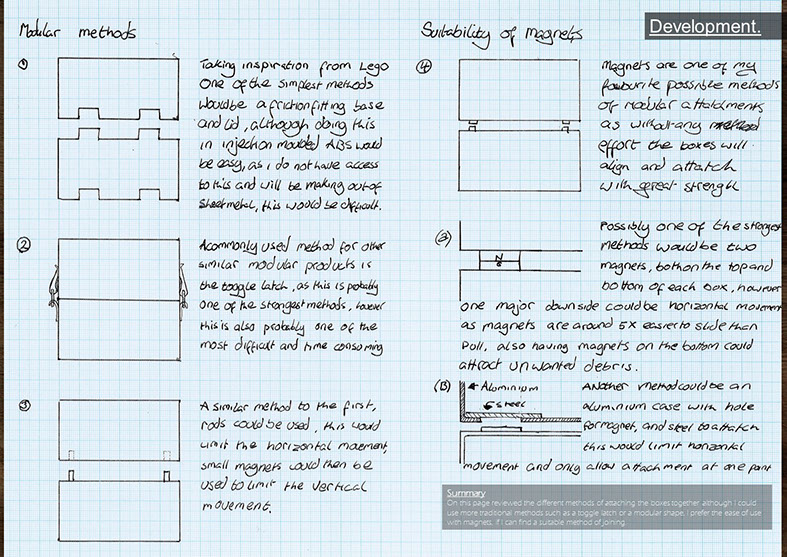 Development.
Modular methods
①
Taking inspiration from Lego
One of the simplest methods
would be a friction fitting base
and lid, although doing this
in injection moulded ABS would
be easy, as i do not have access
to this and will be making out of
sheet metal, this would be difficult.
②
A commonly used method for other
similar modular products is
the toggle latch, as this is probably
one of the strongest methods, however
this is also probably one of the
most difficult and time consuming
③
A similar method to the first,
rods could be used, this would
limit the horizontal movement,
small magnets would then be
used to limit the vertical
movement.
Suitability of magnets
④
Magnets are one of my
favourite possible methods
of modular attatchments
as without any
effort the boxes will
align and attatch
with great strength
(2)
N
S
Possibly one of the strongest
methods would be two
magnets, both on the top and
bottom of each box, however
one major downside could be horizontal movement
as magnets are around 5x easier to slide than
pull, also having magnets on the bottom could
attract unwanted debris.
(B)
Aluminium
Steel
Another method could be an
aluminium case with hole
for magnet, and steel to attatch
this would limit horizontal
movement and only allow attachment at one point
Summary
On this page reviewed the different methods of attaching the boxes together although I could
use more traditional methods such as a toggle latch or a modular shape, I prefer the ease of use
with magnets. If I can find a suitable method of joining.